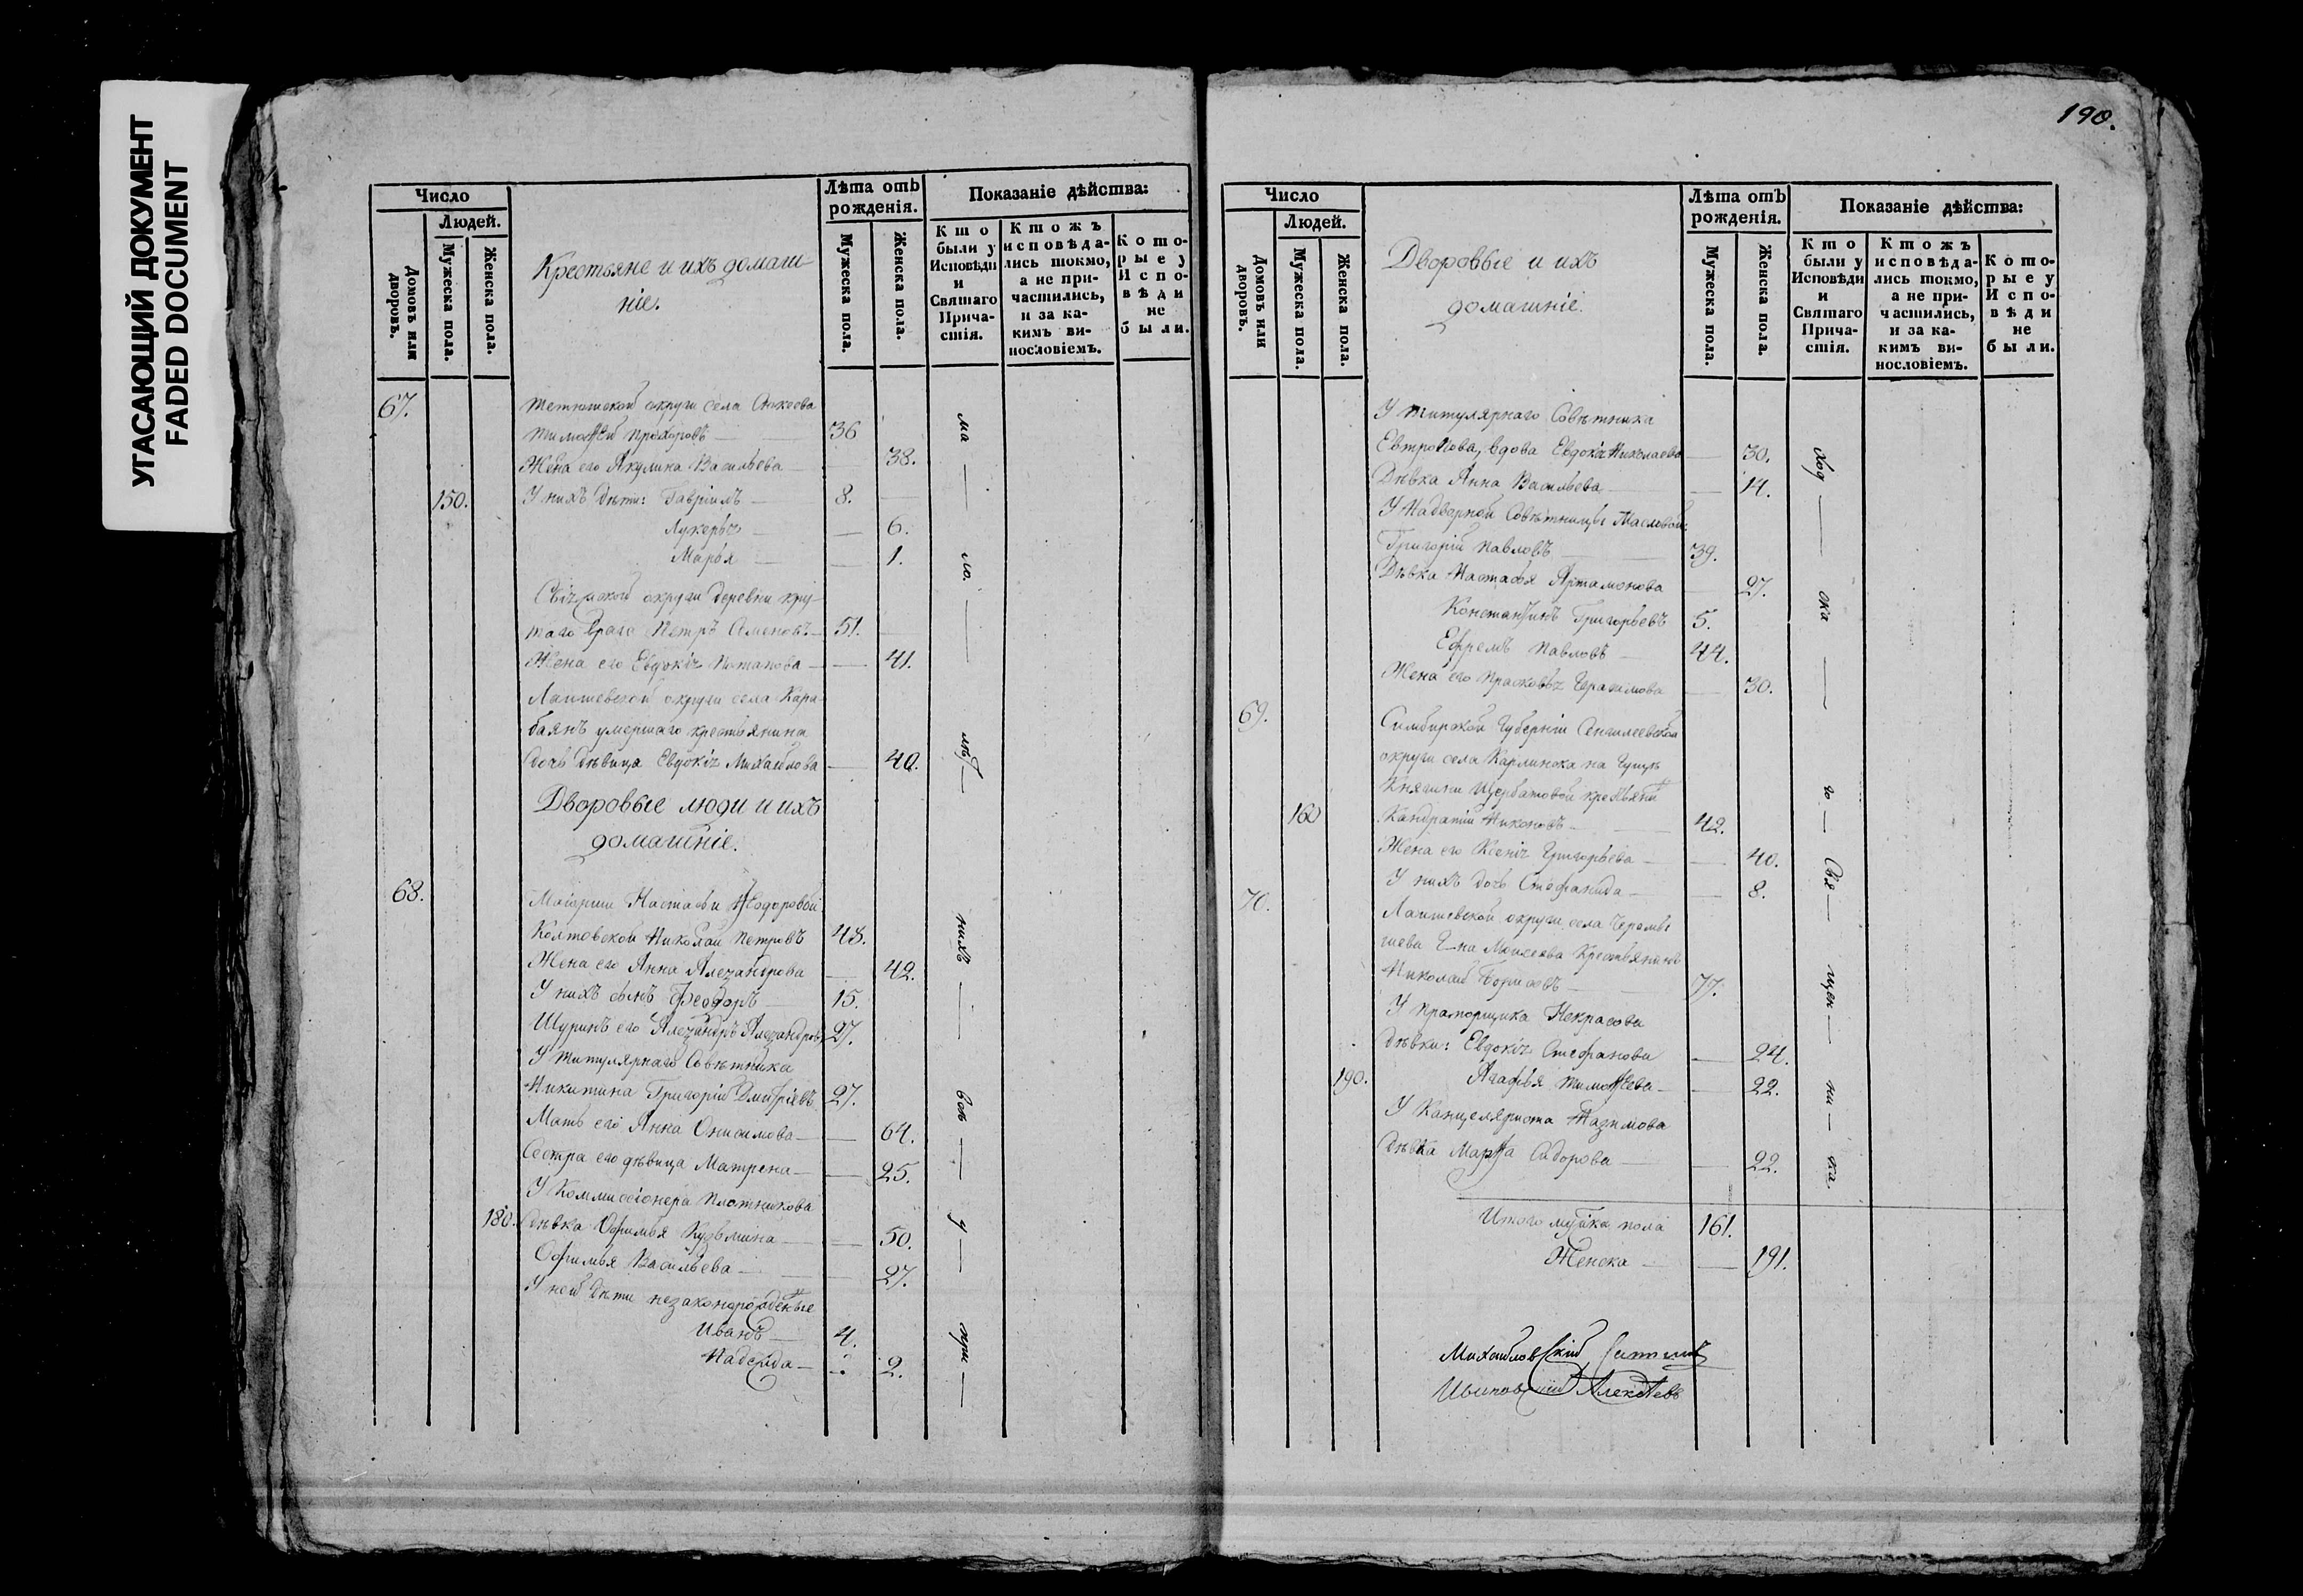 УГАСАЮЩИЙ ДОКУМЕНТ
FADED DOCUMENT
Число
Людей.
Домовъ или дворовъ.
Мужеска пола.
Женска пола.
Крестьяне и ихъ домаш-
ніе.
Лѣта отъ
рожденія.
Мужеска пола.
Женска пола.
Показаніе дѣйства:
Кто
были у
Исповѣди
и
Святаго
Прича-
стія.
Ктожъ
исповѣда-
лись токмо,
а не при-
частились,
и за ка-
кимъ ви-
нословіемъ.
Кото-
рые у
Испо-
вѣди
не
были.
67. Тетюшской округи села
Тимоѳей Прохоровъ — 36
Жена его Акулина Васильева — 38.
150. У нихъ дѣти: Гавріилъ — 8.
Лукерья — 6.
Марья — 1.
округи деревни Кру-
таго Врага Петръ Семеновъ — 51.
Жена его Евдокія Потапова — 41.
Лаишевской округи села Кара-
баянъ умершаго крестьянина
дочь дѣвица Евдокія Михайлова — 40.
Дворовые люди и ихъ
домашніе.
68. Маіорши Настасьи Ѳеодоровой
Колтовской Николай Петровъ 48.
Жена его Анна Алеѯандрова — 42.
У нихъ сынъ Ѳеодоръ — 15.
Шуринъ его Алеѯандръ Алеѯандровъ 27.
У Титулярнаго Совѣтника
Никитина Григорій Дмитріевъ 27.
Мать его Анна Онисимова — 64.
Сестра его дѣвица Матрена — 25.
У Коммиссіонера Плотникова
180. Дѣвка Офимья Кузьмина — 50.
Офимья Васильева — 27.
У ней дѣти незаконорожденные
Иванъ — 4.
Надежда — 2.
190.
Число
Людей.
Домовъ или дворовъ.
Мужеска пола.
Женска пола.
Дворовые и ихъ
домашніе.
Лѣта отъ
рожденія.
Мужеска пола.
Женска пола.
Показаніе дѣйства:
Кто
были у
Исповѣди
и
Святаго
Прича-
стія.
Ктожъ
исповѣда-
лись токмо,
а не при-
частились,
и за ка-
кимъ ви-
нословіемъ.
Кото-
рые у
Испо-
вѣди
не
были.
У Титулярнаго Совѣтника
Евтропова, вдова Евдокія Николаева — 30.
Дѣвка Анна Васильева — 14.
У Надворной Совѣтницы Масловой:
Григорій Павловъ — 39.
Дѣвка Настасья Артамонова — 27.
Константинъ Григорьевъ 5.
Ефремъ Павловъ — 44.
Жена его Прасковья Герасимова — 30.
69. Симбирской Губерніи Сенгилеевской
округи села Карлинска на Гущѣ
Княгини Щербатовой крестьянинъ
160 Кандратій Никоновъ — 42.
Жена его Ксенія Григорьева — 40.
У нихъ дочь Стефанида — 8.
70. Лаишевской округи села Черемы-
шева Г-на Моисеева Крестьянинъ
Николай Борисовъ — 77.
У Прапорщика Некрасова
дѣвки: Евдокія Стефанова — 24.
190. Агафья Тимоѳеева — 22.
У Канцеляриста Назимова
дѣвка Марѳа Сидорова — 22.
Итого мужска пола 161.
Женска — 191.